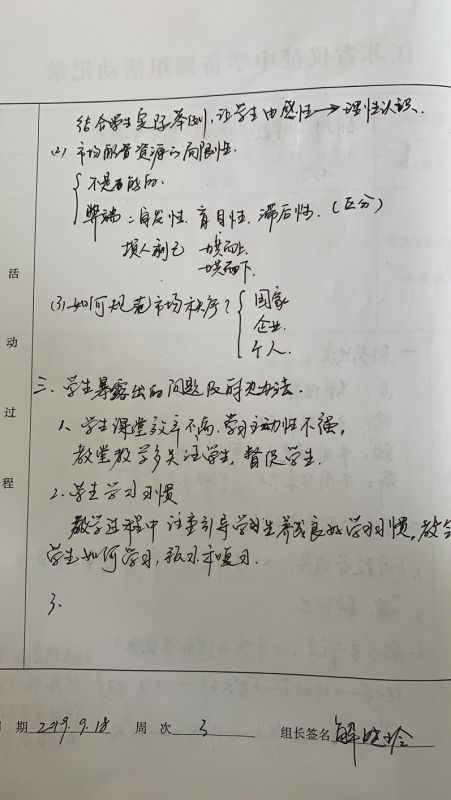 结合学生实际举例，让学生由感性→理性认识.
(2) 市场配置资源的局限性.
不是万能的.
弊端：自发性. 盲目性. 滞后性. (区分)
损人利己 一哄而上.
一哄而下.
(3) 如何规范市场秩序? 国家
企业.
个人.
三. 学生暴露出的问题及解决办法.
1、学生课堂效率不高. 学习主动性不强,
教堂教学多关注学生, 督促学生.
2. 学生学习习惯
教学过程中注重引导学习生养成良好学习习惯, 教会
学生如何学习, 预习和复习.
3.
活动过程
期 2019.9.18 周次 3 组长签名